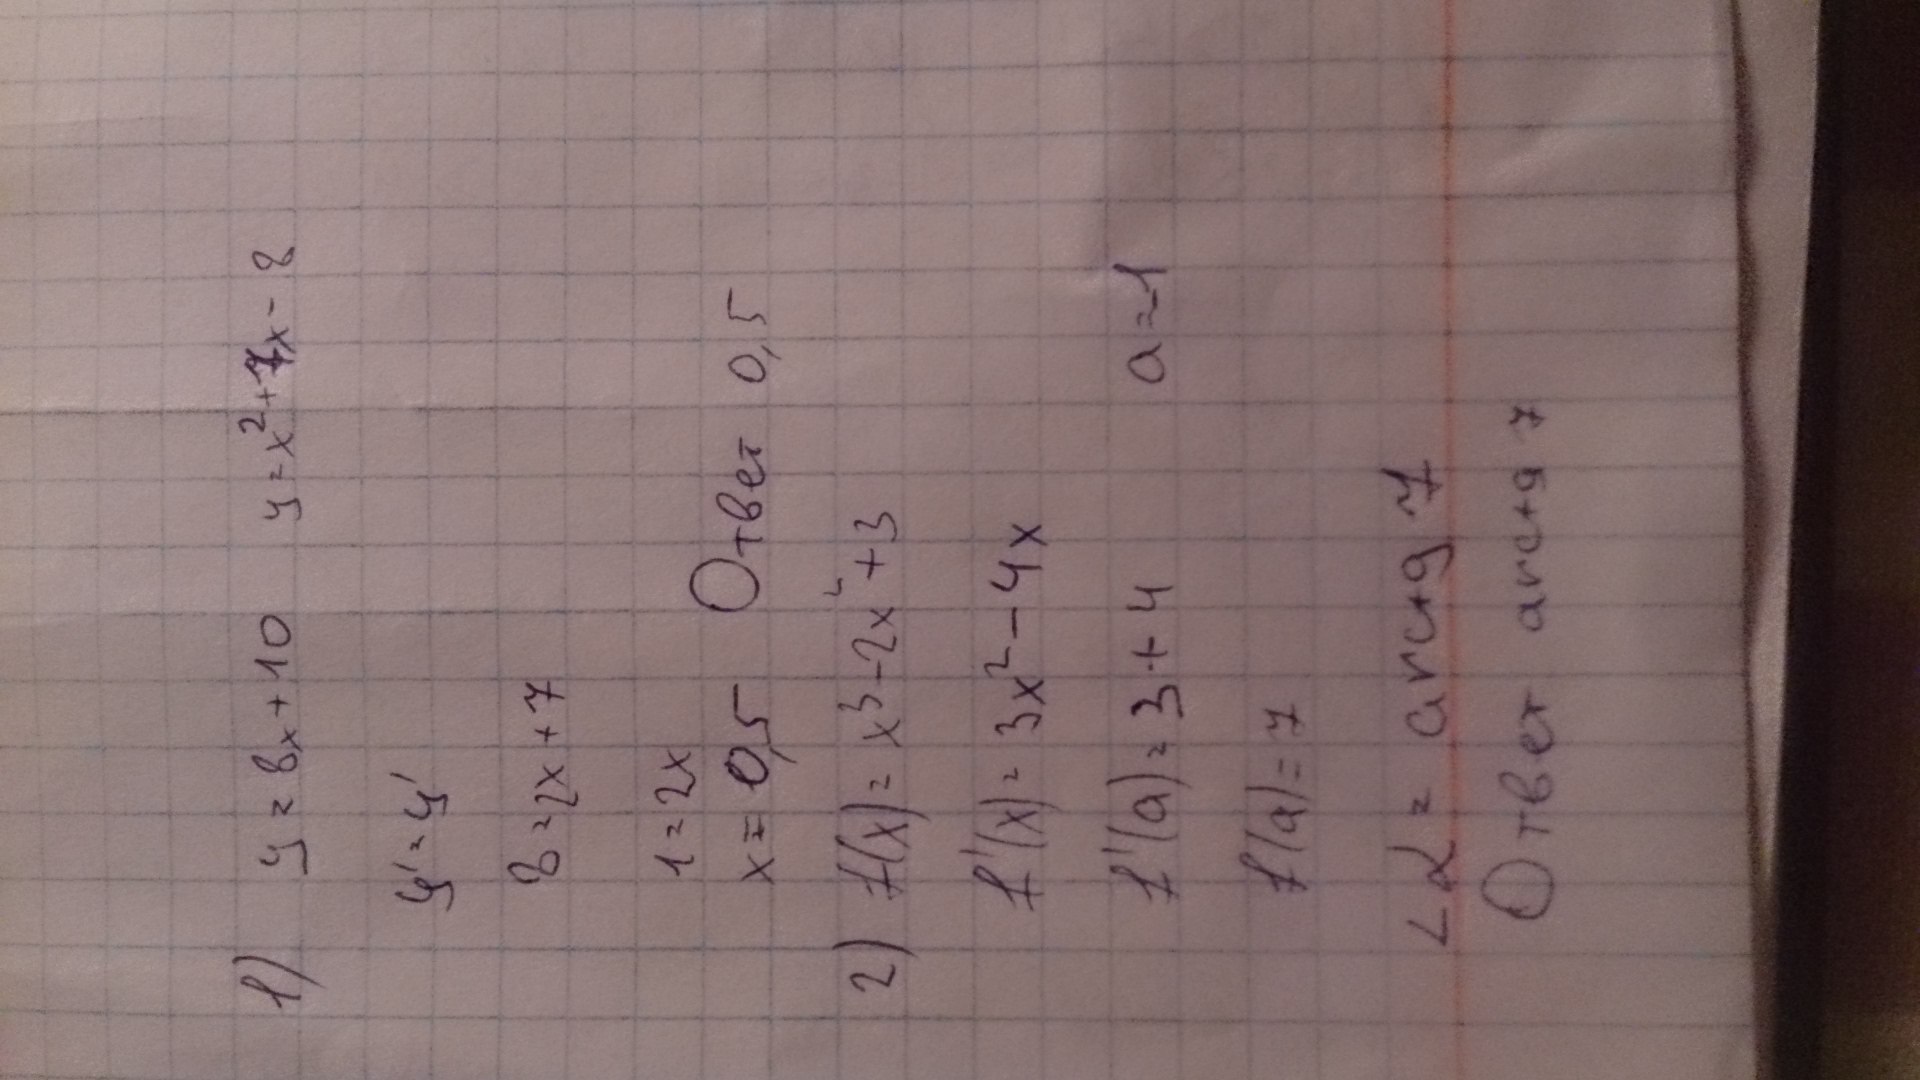 1) y = 8x + 10 y = x² + 7x - 8
y' = y'
8 = 2x + 7
1 = 2x
x = 0,5 Ответ 0,5
2) f(x) = x³ - 2x² + 3
f'(x) = 3x² - 4x
f'(a) = 3 + 4 a = -1
f'(a) = 7
∠α = arctg 7
Ответ arctg 7